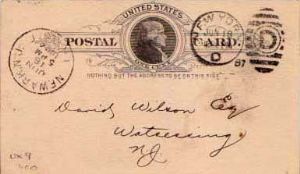 UNITED STATES
POSTAL CARD.
ONE CENT
NOTHING BUT THE ADDRESS TO BE ON THIS SIDE
NEW YORK
JUN 18
D
87
D
NEWARK N.J.
JUN
18
David Wilson Esq
Watsessing
NJ
UX9